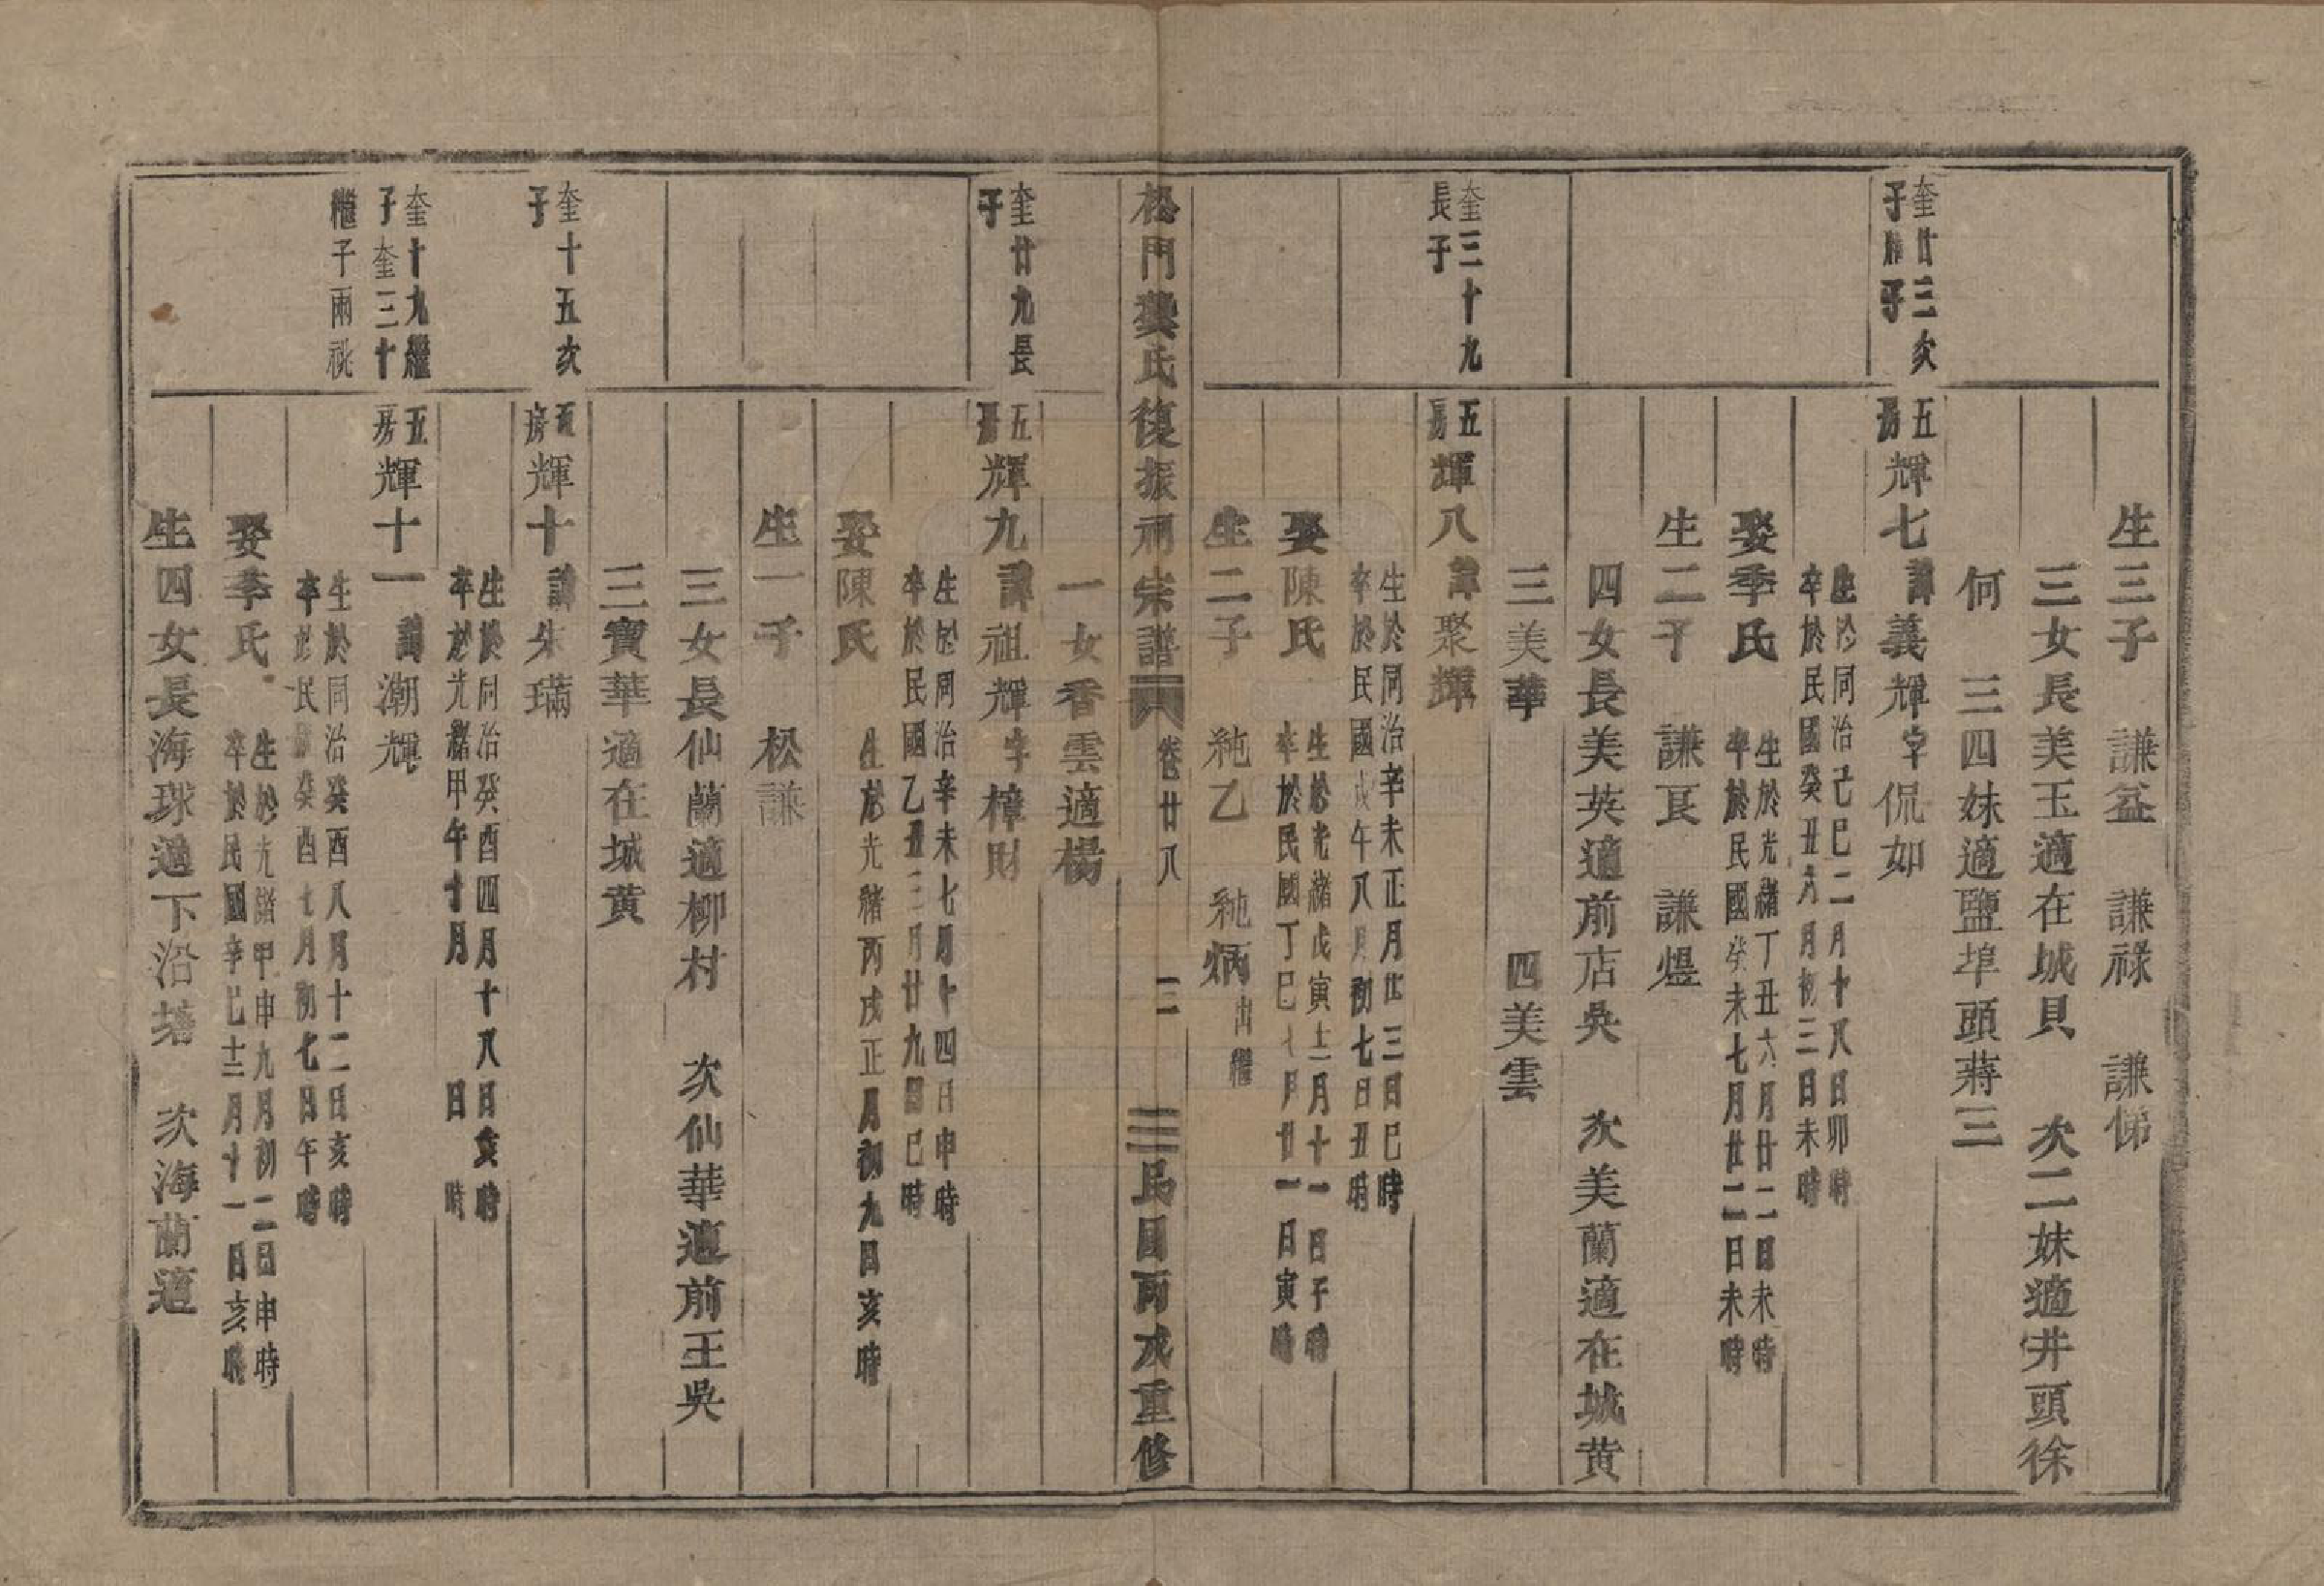 生三子 謙益 謙祿 謙悌
三女長美玉適在城貝 次二妹適井頭徐
何 三四妹適鹽埠頭蔣三
奎廿三次
子 子
五
房
輝七諱義輝字侃如
生於同治己巳二月十八日卯時
卒於民國癸丑六月初三日未時
娶季氏
生於光緒丁丑六月廿二日未時
卒於民國癸未七月廿二日未時
生二子 謙艮 謙煜
四女長美英適前店吳 次美蘭適在城黃
三美華 四美雲
奎三十九
長子
五
房
輝八諱聚輝
生於同治辛未正月廿三日巳時
卒於民國戊午八月初七日丑時
娶陳氏
生於光緒戊寅十二月十一日子時
卒於民國丁巳七月廿一日寅時
生二子 純乙 純炳出繼
松門龔氏復振祠宗譜 卷廿八 二 民國丙戌重修
一女香雲適楊
奎廿九長
子
五
房
輝九諱祖輝字樟財
生於同治辛未七月十四日申時
卒於民國乙丑三月廿九日巳時
娶陳氏
生於光緒丙戌正月初九日亥時
生一子 松謙
三女長仙蘭適柳村 次仙華適前王吳
三寶華適在城黃
奎十五次
子
五
房
輝十諱朱璊
生於同治癸酉四月十八日亥時
卒於光緒甲午十月 日 時
奎十九繼
子奎三十
繼子兩祧
五
房
輝十一諱潮輝
生於同治癸酉八月十二日亥時
卒於民國癸酉七月初七日午時
娶季氏
生於光緒甲申九月初二日申時
卒於民國辛巳十二月十一日亥時
生四女長海球適下沿塘 次海蘭適